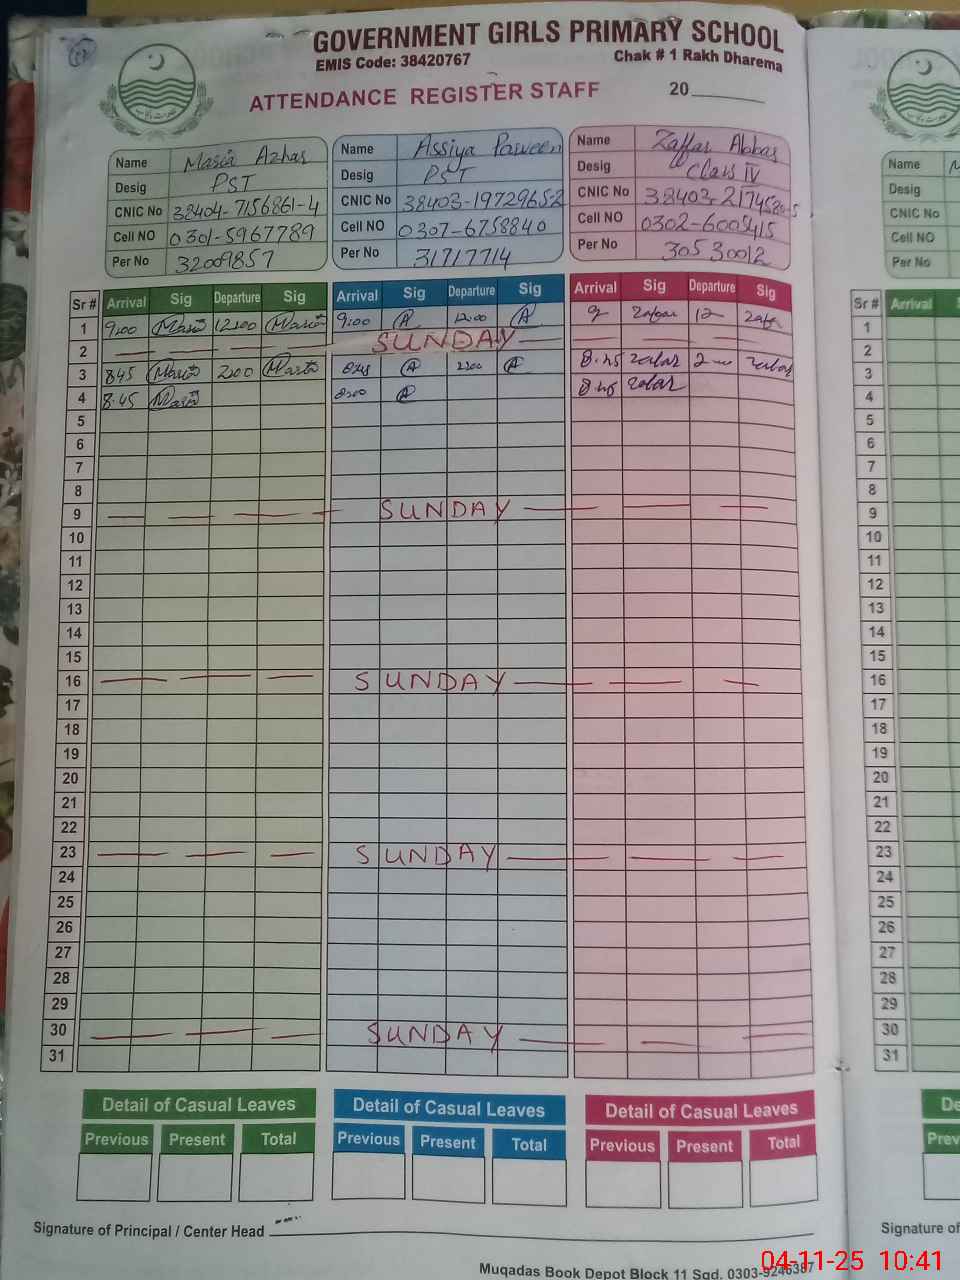 GOVERNMENT GIRLS PRIMARY SCHOOL
EMIS Code: 38420767 Chak # 1 Rakh Dharema
ATTENDANCE REGISTER STAFF 20
Name Maria Azhar
Desig PST
CNIC No 38404-7156861-4
Cell NO 0301-5967789
Per No 32009857
Name Assiya Parveen
Desig PST
CNIC No 38403-1972965-2
Cell NO 0307-6758840
Per No 31717714
Name Zaffar Abbas
Desig Class IV
CNIC No 38403-2174580-5
Cell NO 0302-6005415
Per No 30530012
Sr # Arrival Sig Departure Sig Arrival Sig Departure Sig Arrival Sig Departure Sig
1 9:00 Maria 12:00 Maria 9:00 A 12:00 A 9 Zafar 12 Zafar
2 SUNDAY
3 8:45 Maria 2:00 Maria 8:45 A 2:00 A 8:45 Zafar 2 Zafar
4 8:45 Maria 8:00 A 8:45 Zafar
5
6
7
8
9 SUNDAY
10
11
12
13
14
15
16 SUNDAY
17
18
19
20
21
22
23 SUNDAY
24
25
26
27
28
29
30 SUNDAY
31
Detail of Casual Leaves
Previous Present Total
Detail of Casual Leaves
Previous Present Total
Detail of Casual Leaves
Previous Present Total
Signature of Principal / Center Head
Muqadas Book Depot Block 11 Sgd. 0303-9246387
Name
Desig
CNIC No
Cell NO
Per No
Sr # Arrival
1
2
3
4
5
6
7
8
9
10
11
12
13
14
15
16
17
18
19
20
21
22
23
24
25
26
27
28
29
30
31
Signature of
04-11-25 10:41